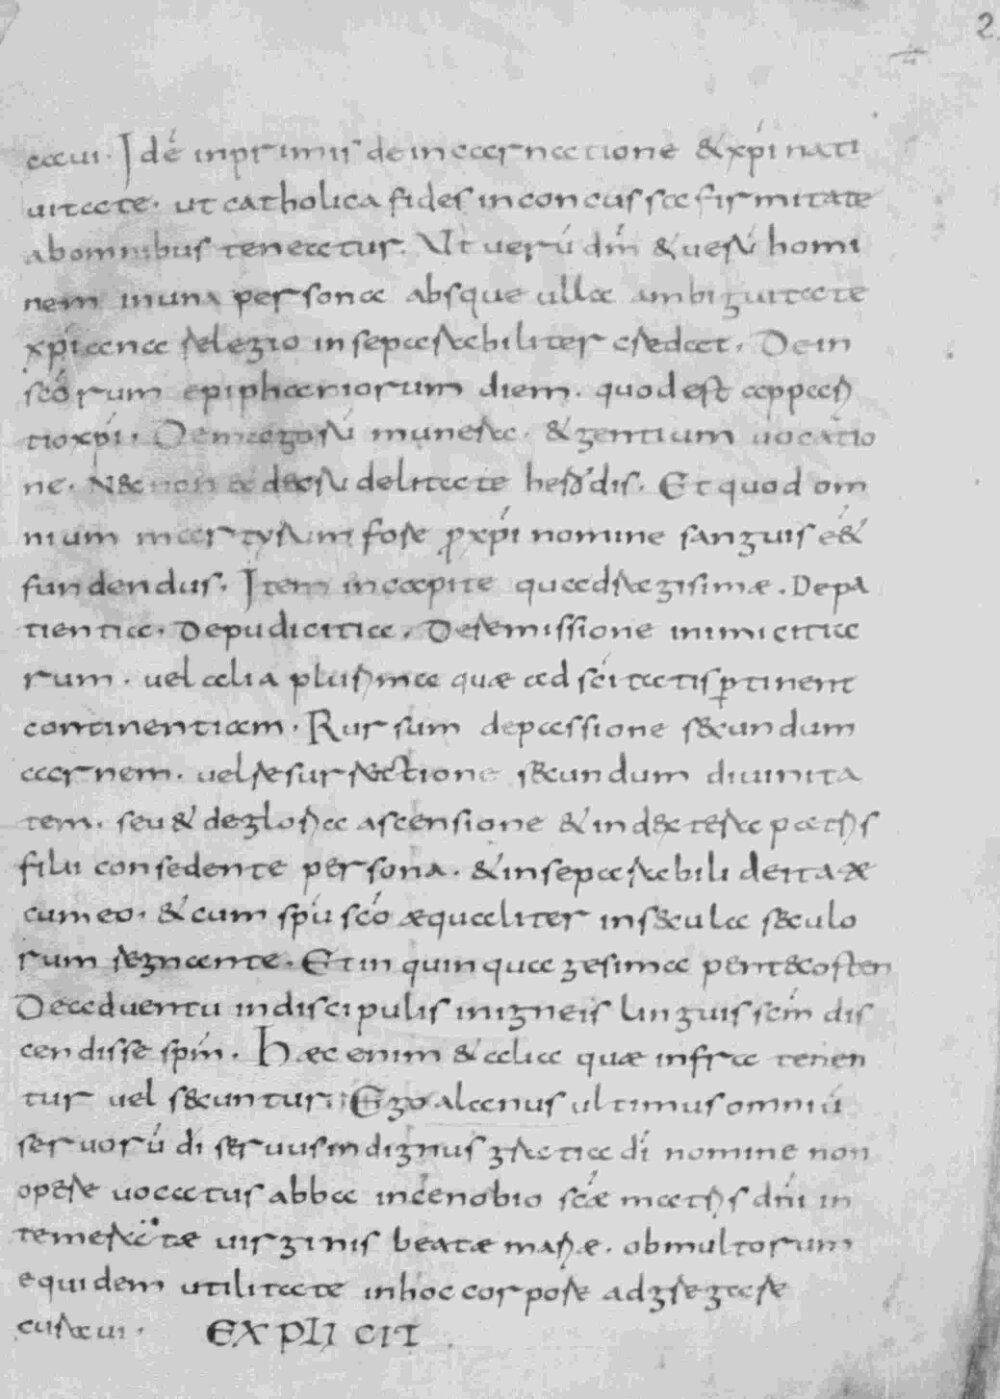 2
caui. Idē inprimis de incarnatione & xp̄i nati
uitate. ut catholica fides inconcussa firmitate
abomnibus teneatur. Ut uerū dm̄ & uerū homi
nem inuna persona absque ulla ambiguitate
xp̄iana relegio inseparabiliter credat. Dein
scōrum epiphaniorum diem. quod est appari
tioxp̄i. Demagorū munera. & gentium uocatio
ne. N&non & decorū delitate herodis. Et quod om
nium martyrum fore ꝓxp̄i nomine sanguis e&
fundendus. Item incapite quadragisimæ. Depa
tientia. Depudicitia. Deremissione inimicitia
rum. uel alia plurima quæ ad sc̄itatis ꝑtinent
continentiam. Rursum depassione s&cundum
carnem. uel resurrectione s&cundum diuinita
tem. seu & degloria ascensione & in d&tera patris
filii consedente persona. & inseparabili deitatæ
cumeo. & cum spū scō æqualiter ins&cula s&culo
rum regnante. Etin quinquagesima pent&costen
Deaduentu indiscipulis inigneis linguis sc̄m dis
cendisse spm̄. Hæc enim & alia quæ infra tenen
tur uel s&cuntur. Ego alanus ultimus omniū
seruorū dī seruusindignus gratia dī nomine non
opere uocatus abba incenobio sc̄æ matris dn̄i in
temeratæ uirginis beatæ mariæ. obmultorum
equidem utilitate inhoc corpore adgregare
curaui. EXPLICIT